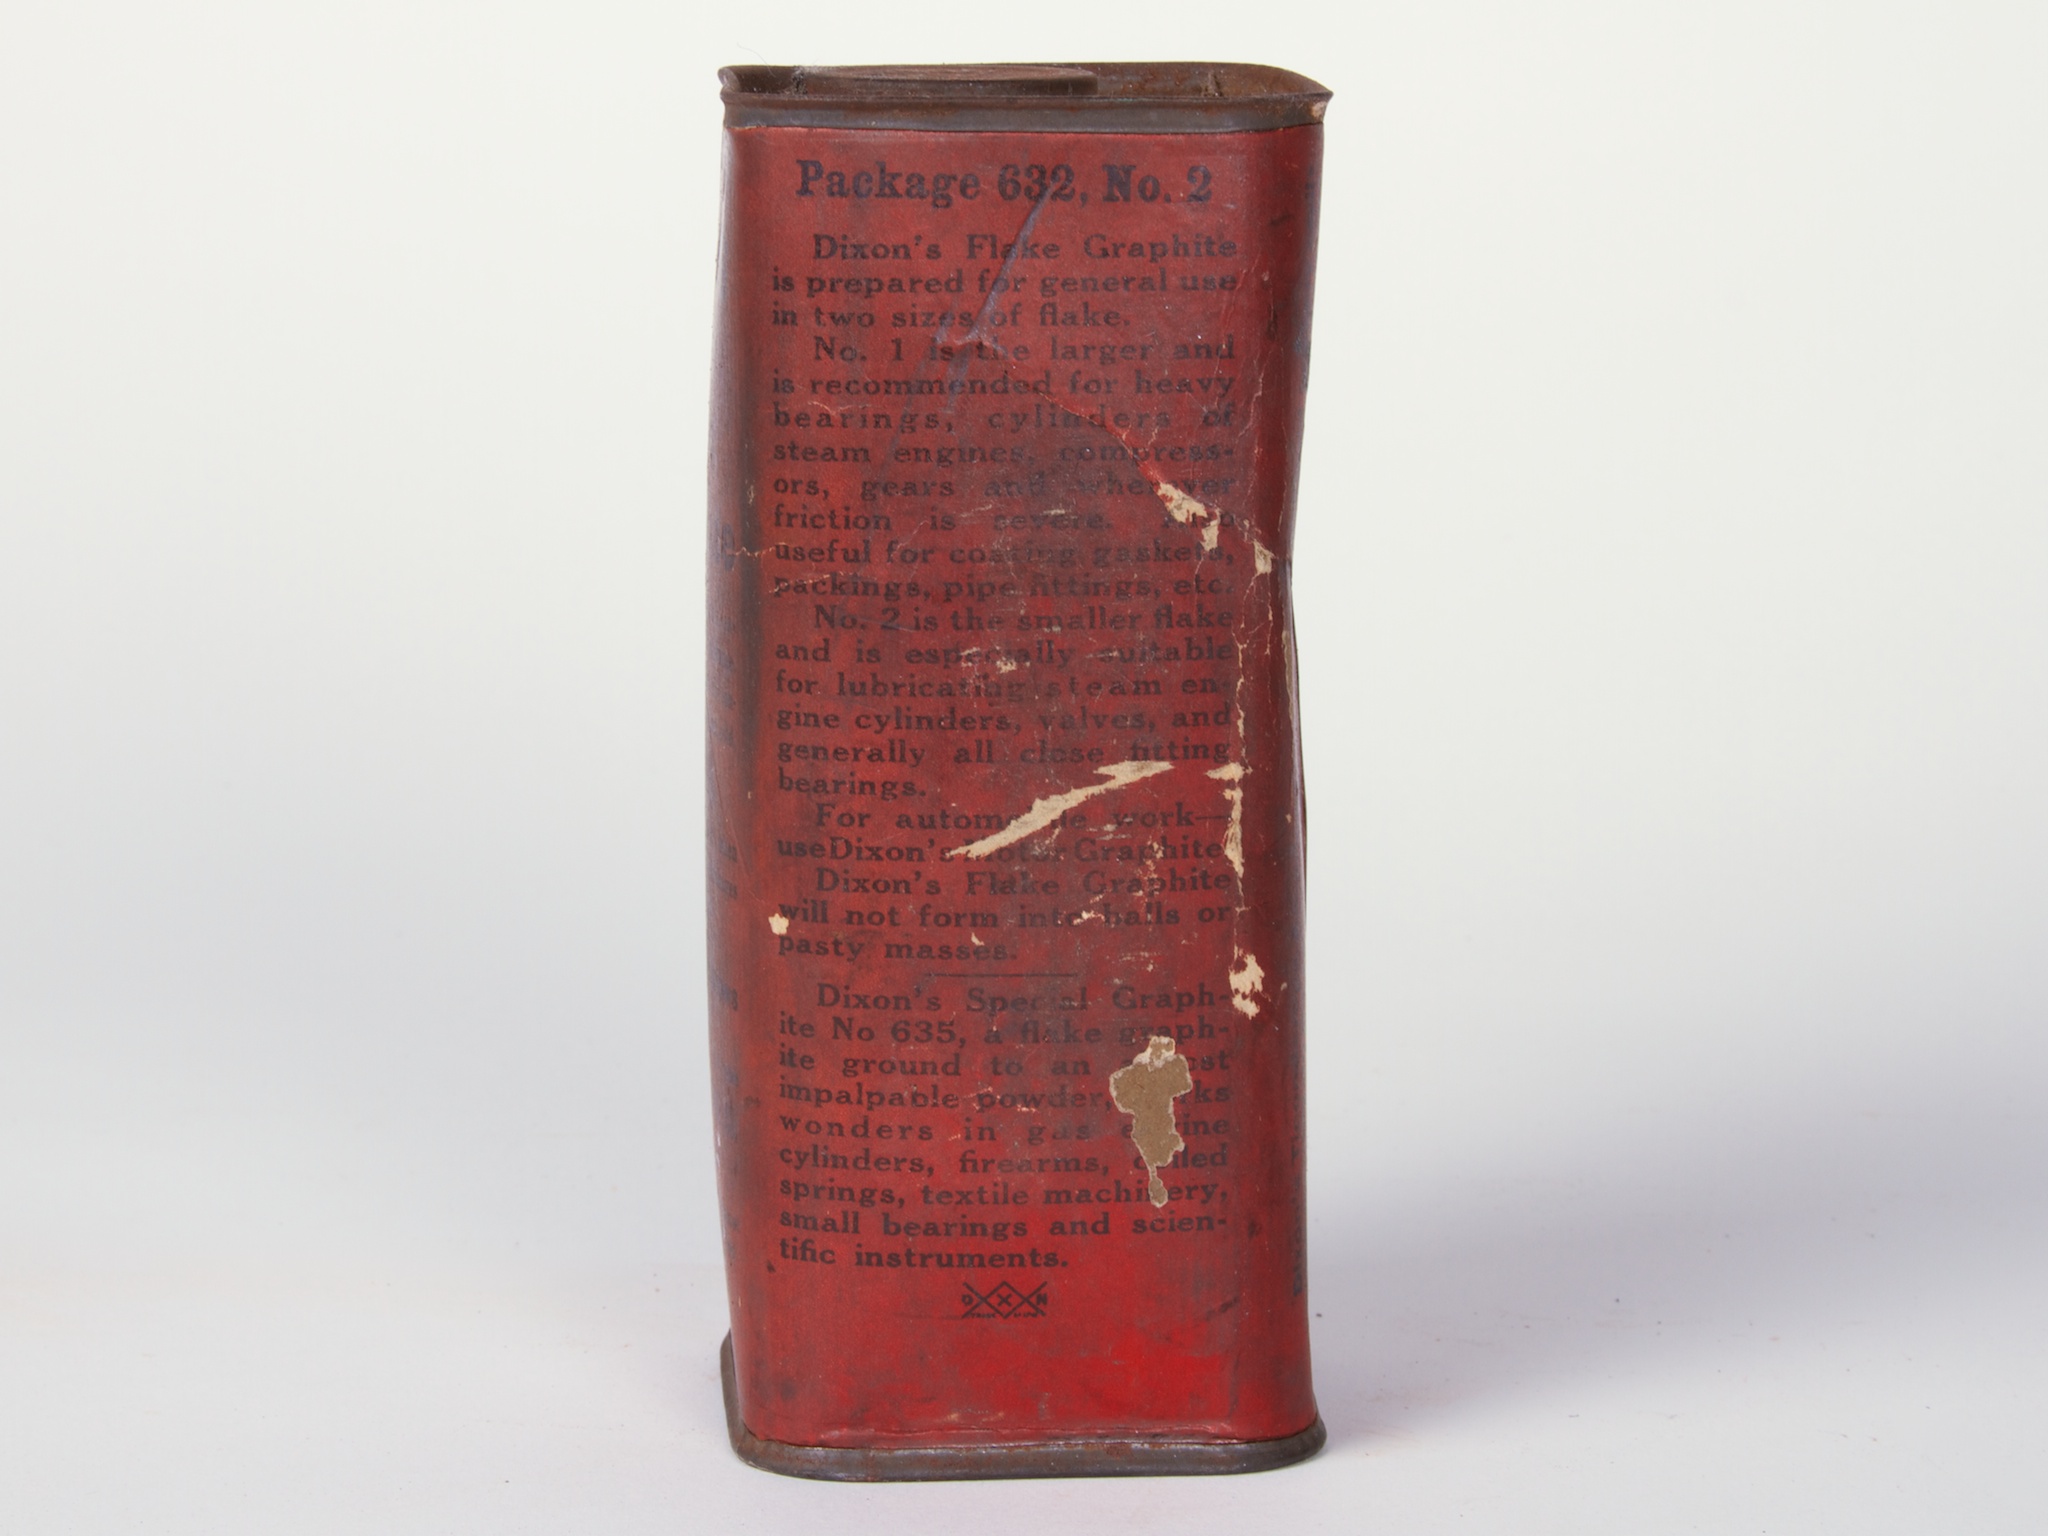 Package 632, No. 2
Dixon's Flake Graphite
is prepared for general use
in two sizes of flake.
No. 1 is the larger and
is recommended for heavy
bearings, cylinders of
steam engines, compress-
ors, gears and wherever
friction is severe. Also
useful for coating gaskets,
packings, pipe fittings, etc.
No. 2 is the smaller flake
and is especially suitable
for lubricating steam en-
gine cylinders, valves, and
generally all close fitting
bearings.
For automobile work—
use Dixon's Motor Graphite.
Dixon's Flake Graphite
will not form into balls or
pasty masses.
Dixon's Special Graph-
ite No 635, a flake graph-
ite ground to an
impalpable powder,
wonders in gas engine
cylinders, firearms, coiled
springs, textile machinery,
small bearings and scien-
tific instruments.
DIXON